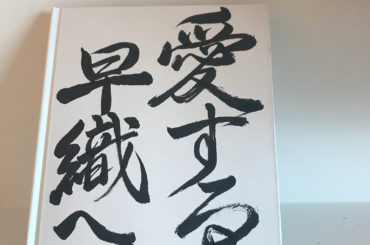 愛する
早織へ